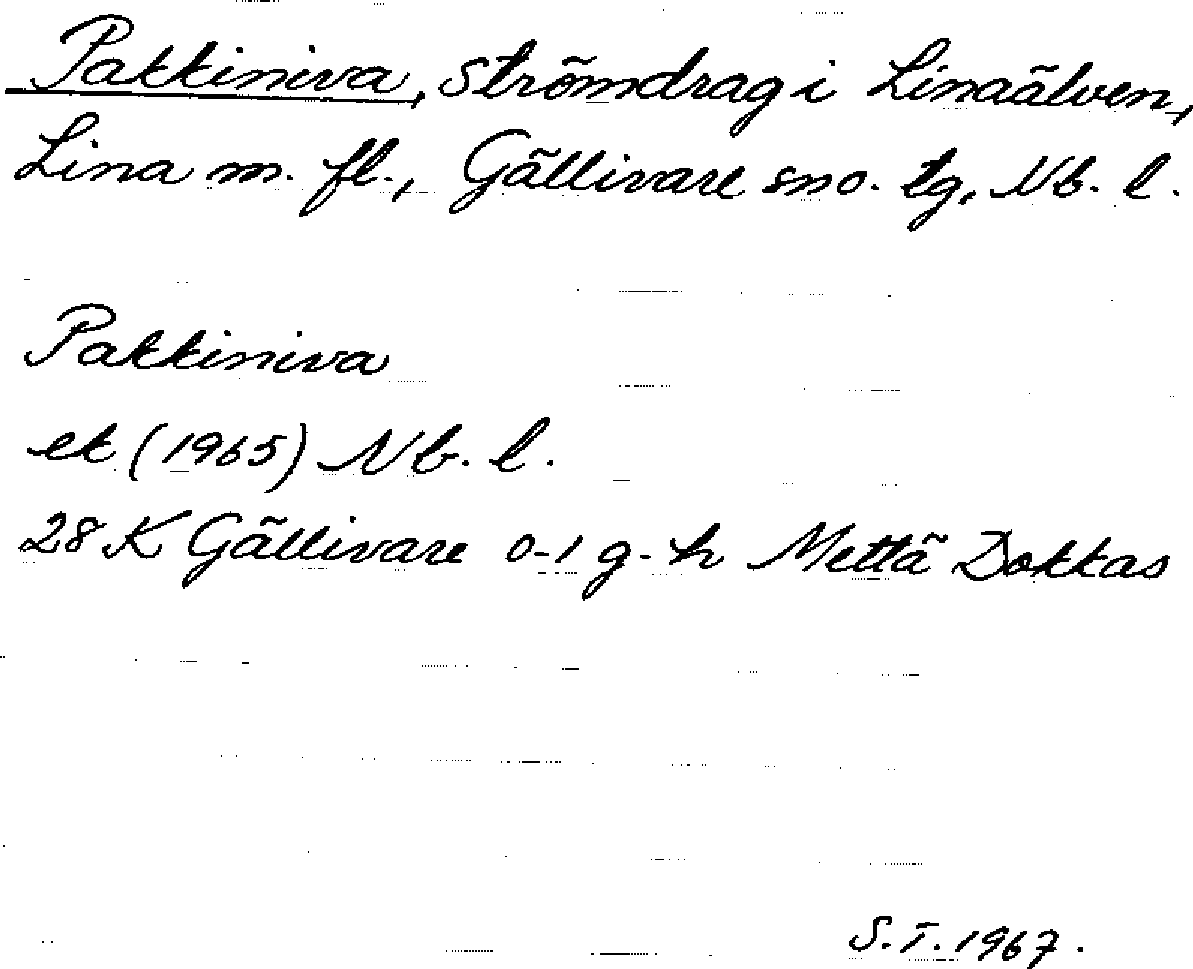 Pakkiniva, strömdrag i Linaälven,
Lina m. fl., Gällivare sno. tg, Nb. l.
Pakkiniva
ek (1965) Nb. l.
28 K Gällivare 0-1 g-h Mettä Dokkas
S.T. 1967.